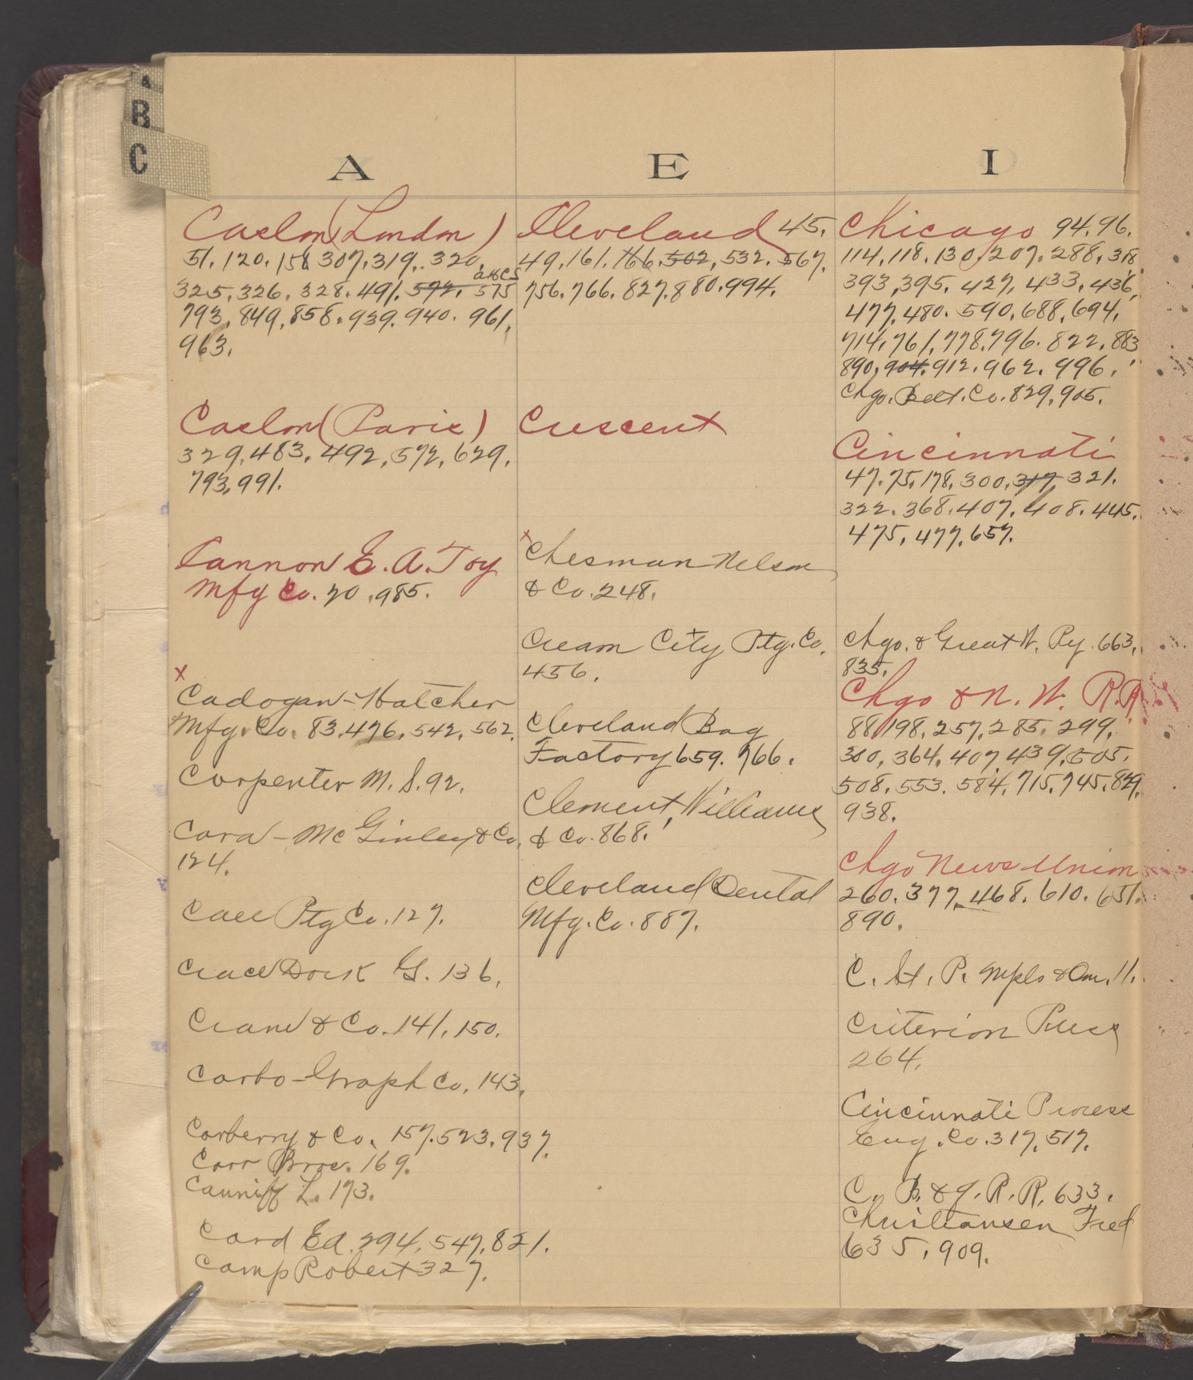 B
C
A
Caslon (London)
51, 120, 158, 307, 319, 320,
325, 326, 328, 491, 572, 575
793, 849, 858, 939, 940, 961,
963.
Caslon (Paris)
329, 483, 492, 572, 629,
793, 991.
Cannon E. A. Toy
Mfg Co. 70, 985.
x
Cadogan-Hatcher
Mfg. Co. 83, 476, 542, 562.
Carpenter M. S. 92.
Cord-McGinley & Co.
124.
Case Ptg Co. 127.
Grace Dock G. 136.
Crane & Co. 141, 150.
Carbo-Graph Co. 143.
Carberry & Co. 157, 523, 937.
Carr Bros. 169.
Cauniff L. 173.
Card Ed. 294, 547, 821.
Camp Robert 327.
E
Cleveland 45,
49, 161, 166, 502, 532, 567,
756, 766, 827, 880, 994.
Crescent
x
Chesman Nelson
& Co. 248.
Cream City Ptg. Co.
456.
Cleveland Bag
Factory 659, 766.
Clement, Williams
& Co. 868.
Cleveland Dental
Mfg. Co. 887.
I
Chicago 94, 96,
114, 118, 130, 207, 288, 318
393, 395, 427, 433, 436,
477, 480, 590, 688, 694,
714, 761, 778, 796, 822, 883
890, 904, 912, 962, 996,
Chgo. Belt. Co. 829, 905.
Cincinnati
47, 75, 178, 300, 317, 321,
322, 368, 407, 408, 445,
475, 477, 657.
Chgo. & Great W. Ry. 663,
835.
Chgo & N. W. RR
88, 198, 257, 285, 299,
300, 364, 407, 439, 505,
508, 553, 584, 715, 745, 829,
938.
Chgo News-Union
260, 377, 468, 610, 651,
890.
C. St. P. Mpls & Om. 11.
Criterion Press
264.
Cincinnati Process
Eng. Co. 317, 517.
C. B. & Q. R. R. 633.
Christiansen Fred
635, 909.